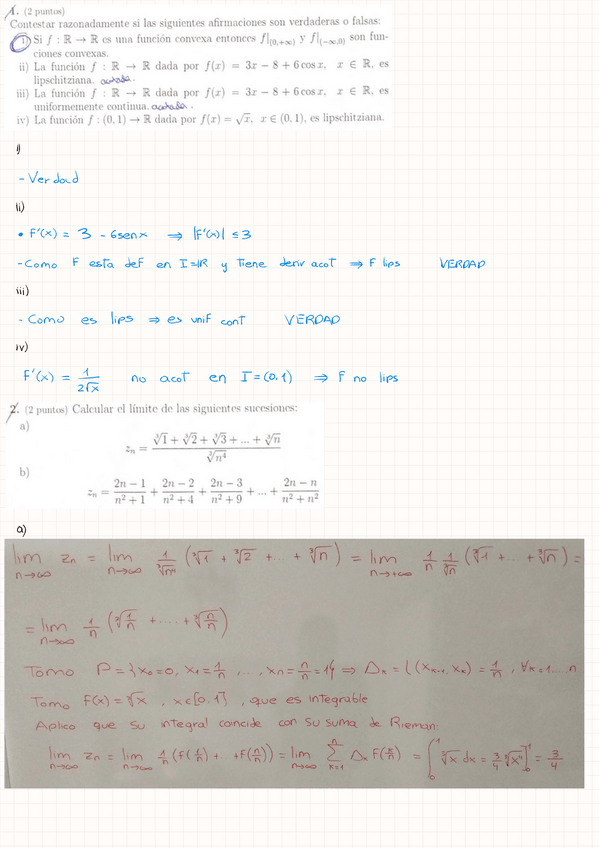 1. (2 puntos)
Contestar razonadamente si las siguientes afirmaciones son verdaderas o falsas:
i) Si f : ℝ → ℝ es una función convexa entonces f|(0,+∞) y f|(−∞,0) son fun-
ciones convexas.
ii) La función f : ℝ → ℝ dada por f(x) = 3x − 8 + 6 cos x, x ∈ ℝ, es
lipschitziana. acotada.
iii) La función f : ℝ → ℝ dada por f(x) = 3x − 8 + 6 cos x, x ∈ ℝ, es
uniformemente continua. acotada.
iv) La función f : (0, 1) → ℝ dada por f(x) = √x, x ∈ (0, 1), es lipschitziana.
i)
- Verdad
ii)
• F'(x) = 3 - 6senx ⇒ |F'(x)| ≤ 3
- Como F esta deF en I=ℝ y tiene deriv acot ⇒ F lips VERDAD
iii)
- Como es lips ⇒ es unif cont VERDAD
iv)
F'(x) = 1/(2√x) no acot en I=(0,1) ⇒ F no lips
2. (2 puntos) Calcular el límite de las siguientes sucesiones:
a)
zn = (∛1 + ∛2 + ∛3 + ... + ∛n)/∛n⁴
b)
zn = (2n − 1)/(n² + 1) + (2n − 2)/(n² + 4) + (2n − 3)/(n² + 9) + ... + (2n − n)/(n² + n²)
a)
lim n→∞ zn = lim n→∞ 1/∛n⁴ (∛1 + ∛2 + ... + ∛n) = lim n→+∞ 1/n 1/∛n (∛1 + ... + ∛n) =
= lim n→∞ 1/n (∛(1/n) + .... + ∛(n/n))
Tomo P = {x0 = 0, x1 = 1/n, ..., xn = n/n = 1} ⇒ Δk = l(xk-1, xk) = 1/n, ∀k = 1...n
Tomo F(x) = ∛x, x∈[0,1], que es integrable
Aplico que su integral coincide con su suma de Rieman:
lim n→∞ zn = lim n→∞ 1/n (F(1/n) + +F(n/n)) = lim n→∞ ∑ k=1 n Δk F(k/n) = ∫₀¹ ∛x dx = 3/4 ∛x⁴]₀¹ = 3/4